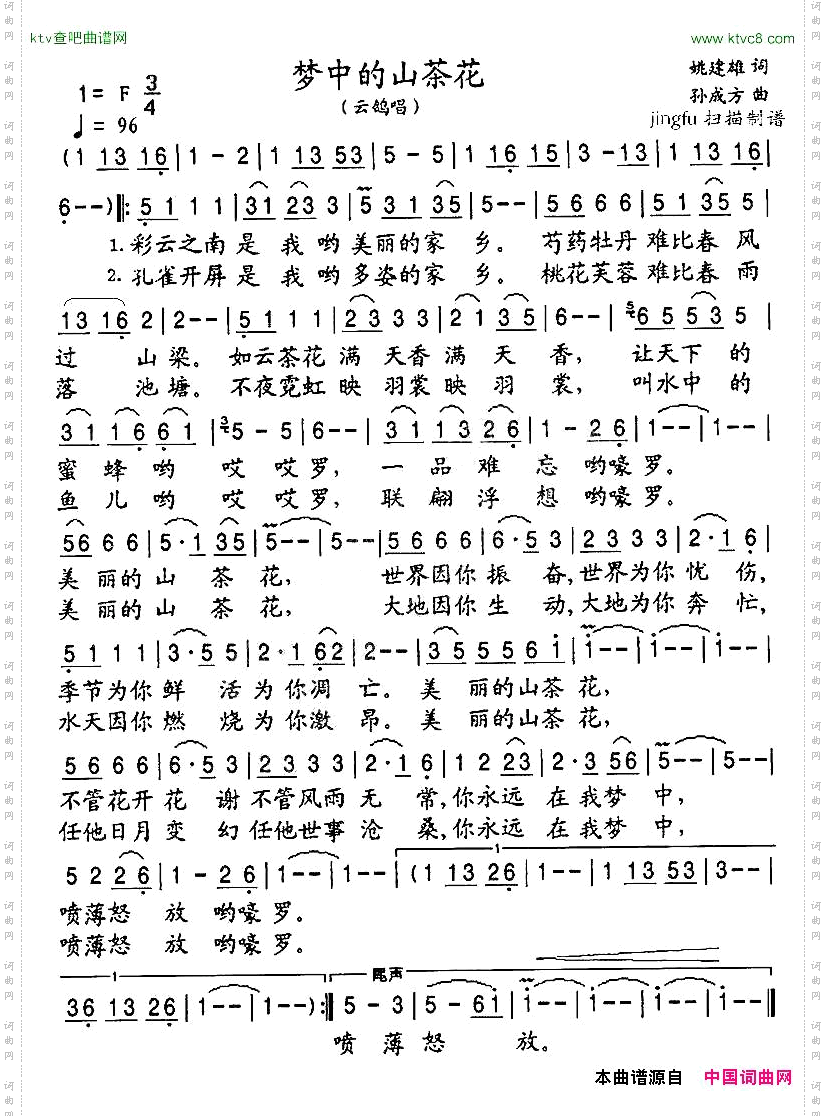 ktv查吧曲谱网
www.ktvc8.com
梦中的山茶花
(云鸽唱)
姚建雄 词
孙成方 曲
jingfu 扫描制谱
1= F 3/4
♩= 96
(1 13 16|1-2|1 13 53|5-5|1 16 15|3-13|1 13 16|
6--)‖:5 1 1 1|31 23 3|5 31 35|5--|5 6 6 6|51 35 5|
1.彩云之南是我哟美丽的家乡。芍药牡丹难比春风
2.孔雀开屏是我哟多姿的家乡。桃花芙蓉难比春雨
13 16 2|2--|5 1 1 1|2 3 3 3|2 1 35|6--|6 5 5 3 5|
过山梁。如云茶花满天香满天香,让天下的
落池塘。不夜霓虹映羽裳映羽裳,叫水中的
31 16 61|5-5|6--|31 13 26|1-26|1--|1--|
蜜蜂哟哎哎罗,一品难忘哟嚎罗。
鱼儿哟哎哎罗,联翩浮想哟嚎罗。
56 6 6|5·1 35|5--|5--|5 6 6 6|6·5 3|2 3 3 3|2·1 6|
美丽的山茶花,世界因你振奋,世界为你忧伤,
美丽的山茶花,大地因你生动,大地为你奔忙,
5 1 1 1|3·5 5|2·1 62|2--|35 55 6i|i--|i--|i--|
季节为你鲜活为你凋亡。美丽的山茶花,
水天因你燃烧为你激昂。美丽的山茶花,
5 6 6 6|6·5 3|2 3 3 3|2·1 6|1 2 23|2·3 56|5--|5--|
不管花开花谢不管风雨无常,你永远在我梦中,
任他日月变幻任他世事沧桑,你永远在我梦中,
5 2 2 6|1-26|1--|1--|(1 13 26|1 13 53|3--|
1
喷薄怒放哟嚎罗。
喷薄怒放哟嚎罗。
1
尾声
36 13 26|1--|1--):‖5-3|5-61|i--|i--|i--‖
喷薄怒放。
本曲谱源自 中国词曲网